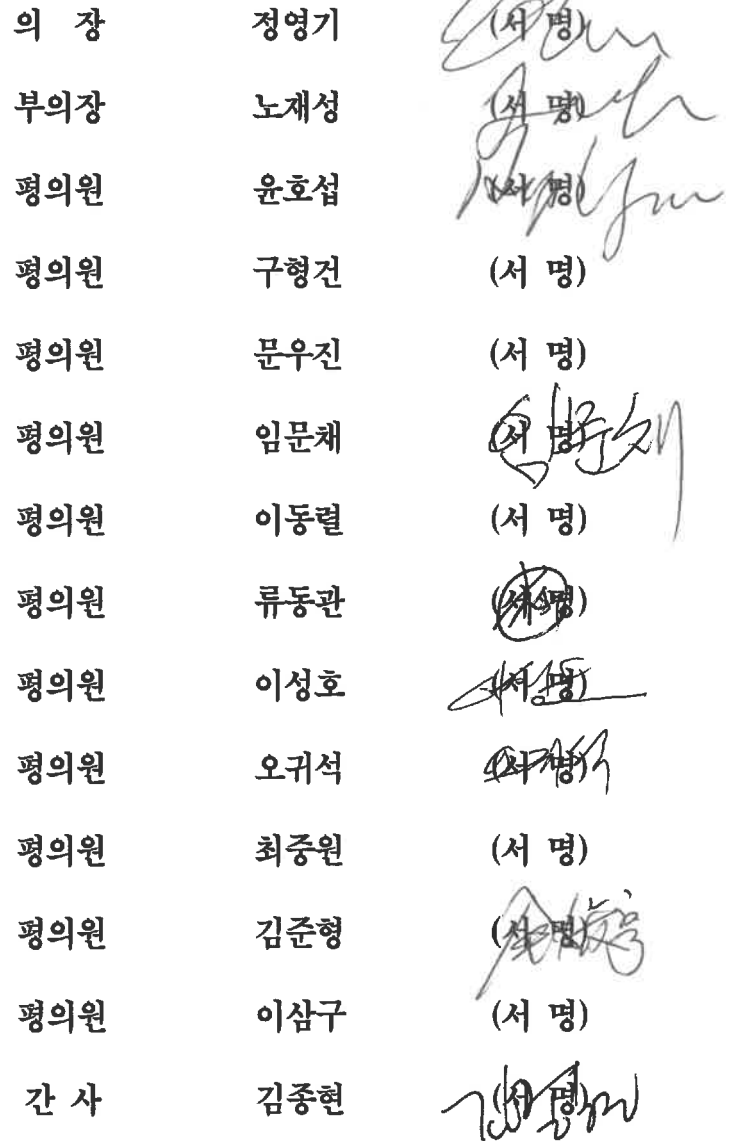 의 장 정영기 (서 명)
부의장 노재성 (서 명)
평의원 윤호섭 (서 명)
평의원 구형건 (서 명)
평의원 문우진 (서 명)
평의원 임문채 (서 명)
평의원 이동렬 (서 명)
평의원 류동관 (서 명)
평의원 이성호 (서 명)
평의원 오귀석 (서 명)
평의원 최중원 (서 명)
평의원 김준형 (서 명)
평의원 이삼구 (서 명)
간 사 김종현 (서 명)